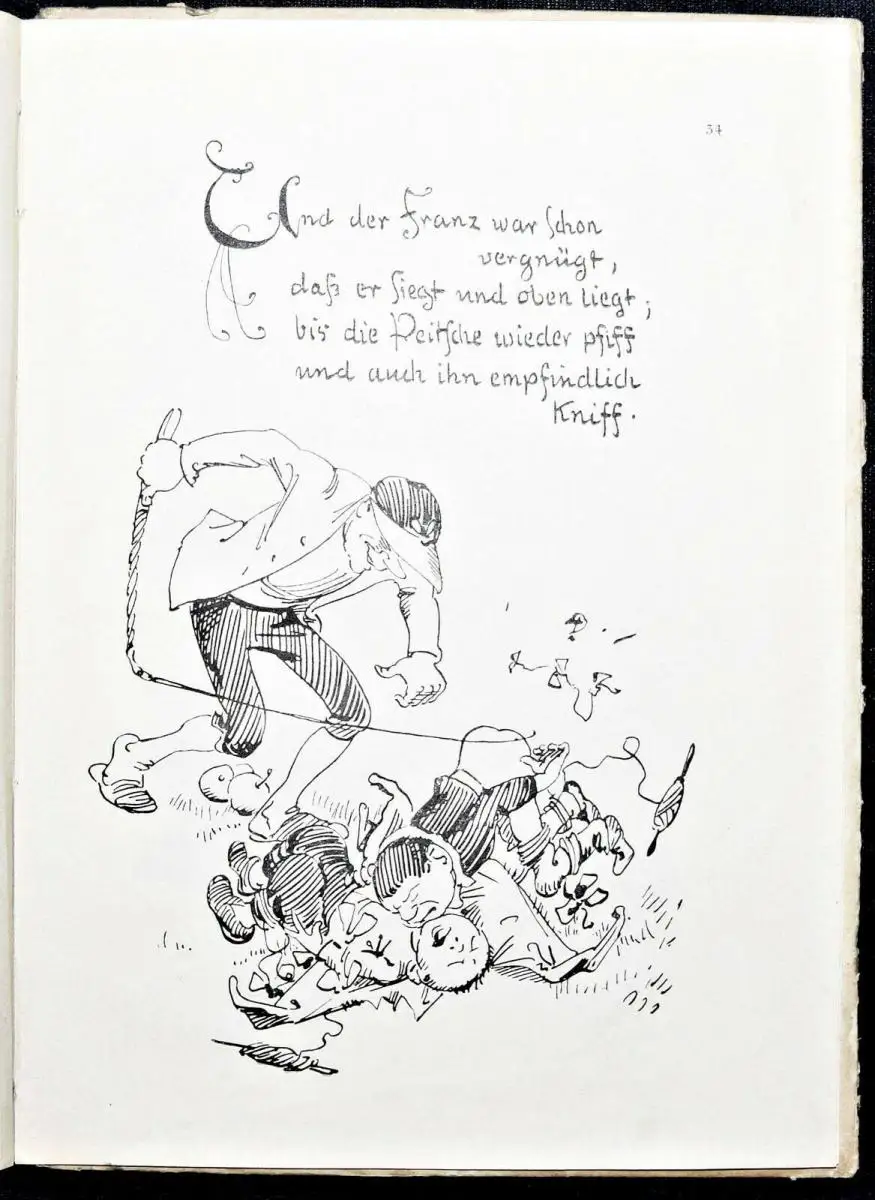 34
Und der Franz war schon
vergnügt,
daß er siegt und oben liegt;
bis die Peitsche wieder pfiff
und auch ihn empfindlich
kniff.